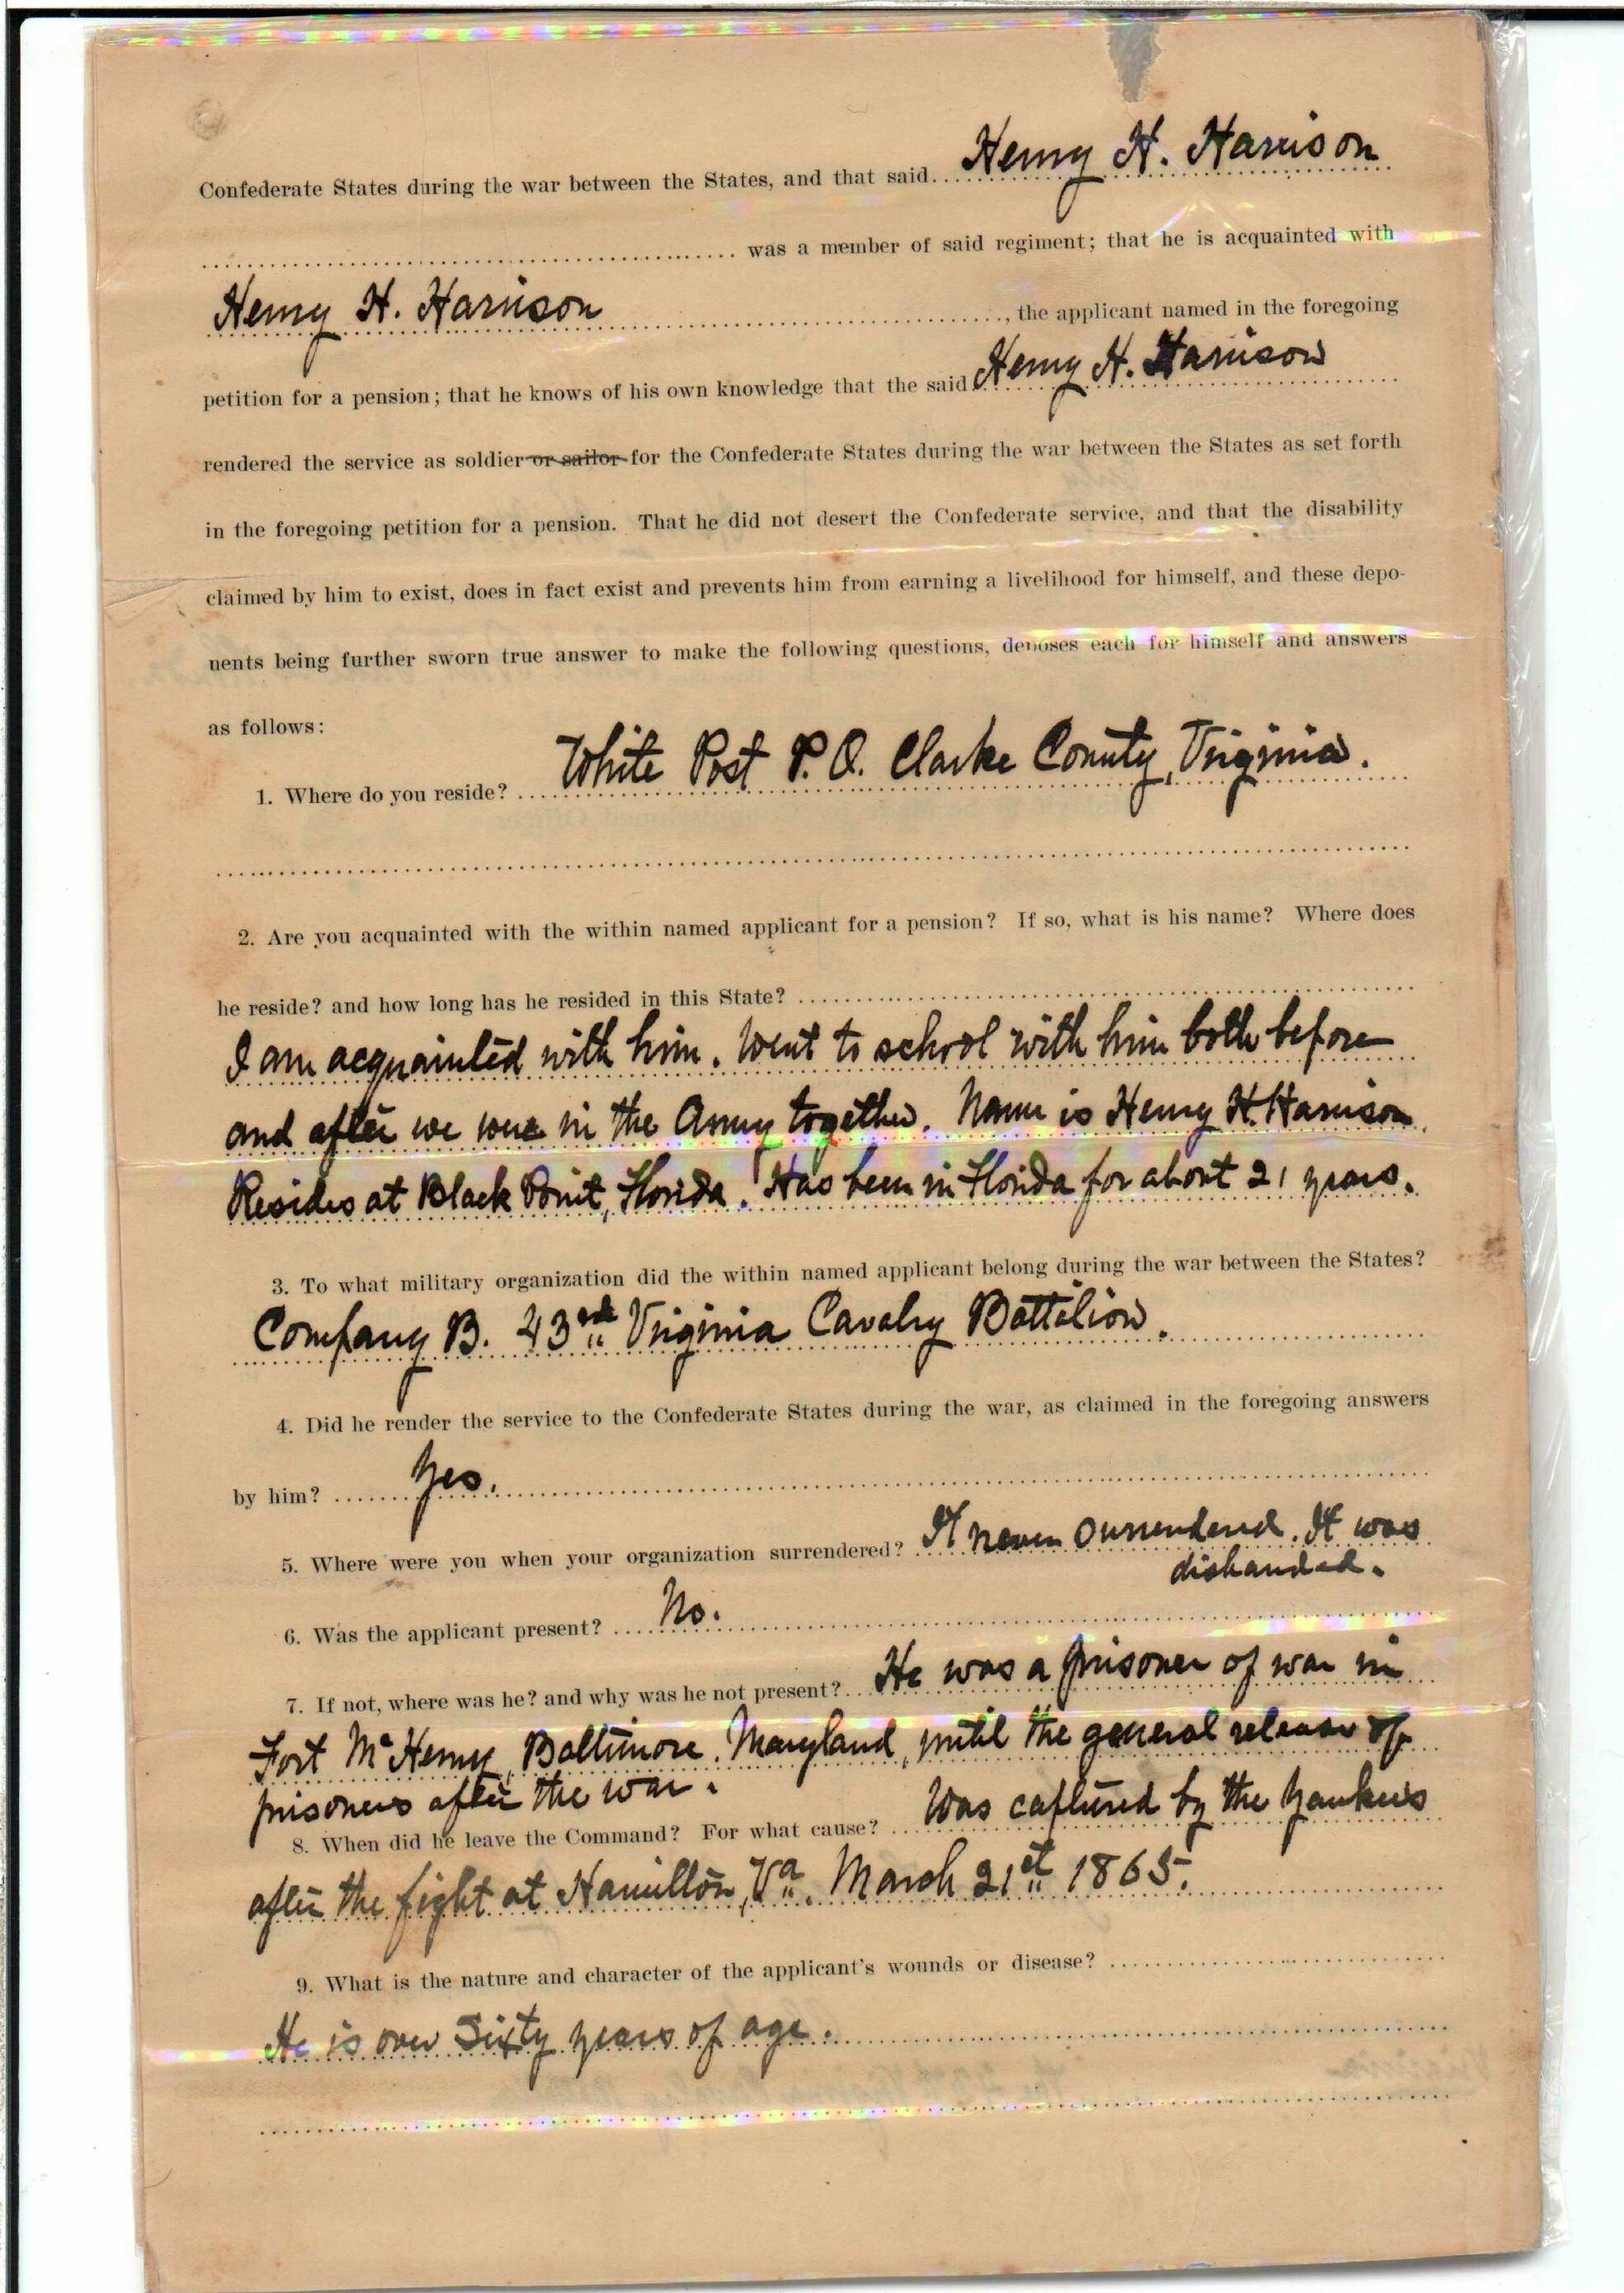 Confederate States during the war between the States, and that said Henry H. Harrison
was a member of said regiment; that he is acquainted with
Henry H. Harrison, the applicant named in the foregoing
petition for a pension; that he knows of his own knowledge that the said Henry H. Harrison
rendered the service as soldier or sailor for the Confederate States during the war between the States as set forth
in the foregoing petition for a pension. That he did not desert the Confederate service, and that the disability
claimed by him to exist, does in fact exist and prevents him from earning a livelihood for himself, and these depo-
nents being further sworn true answer to make the following questions, deposes each for himself and answers
as follows:
1. Where do you reside? White Post P.O. Clarke County, Virginia.
2. Are you acquainted with the within named applicant for a pension? If so, what is his name? Where does
he reside? and how long has he resided in this State?
I am acquainted with him. Went to school with him both before
and after we were in the Army together. Name is Henry H. Harrison
Resides at Black Point, Florida. Has been in Florida for about 21 years.
3. To what military organization did the within named applicant belong during the war between the States?
Company B. 43rd Virginia Cavalry Battalion.
4. Did he render the service to the Confederate States during the war, as claimed in the foregoing answers
by him? Yes.
5. Where were you when your organization surrendered? It never surrendered. It was
disbanded.
6. Was the applicant present? No.
7. If not, where was he? and why was he not present? He was a prisoner of war in
Fort McHenry, Baltimore, Maryland, until the general release of
prisoners after the war.
8. When did he leave the Command? For what cause? Was captured by the Yankees
after the fight at Hamilton, Va. March 21st 1865.
9. What is the nature and character of the applicant's wounds or disease?
He is over Sixty years of age.